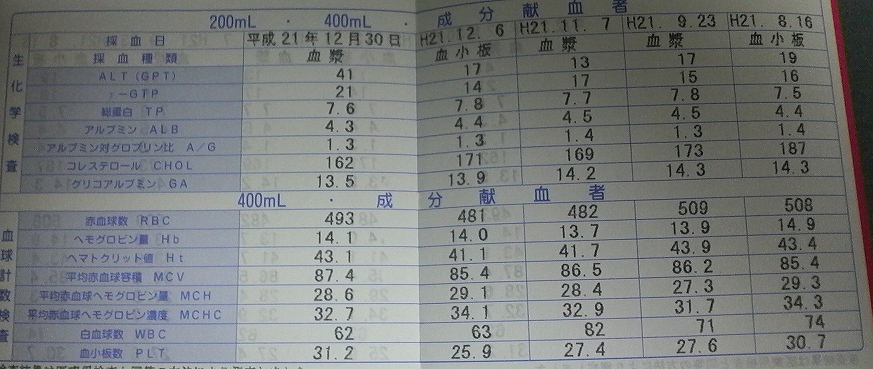 200mL ・ 400mL ・ 成分献血者
採血日 平成21年12月30日 H21.12. 6 H21.11. 7 H21. 9.23 H21. 8.16
採血種類 血漿 血小板 血漿 血漿 血小板
生化学検査
ALT(GPT) 41 17 13 17 19
γ-GTP 21 14 17 15 16
総蛋白 TP 7.6 7.8 7.7 7.8 7.5
アルブミン ALB 4.3 4.4 4.5 4.5 4.4
アルブミン対グロブリン比 A/G 1.3 1.3 1.4 1.3 1.4
コレステロール CHOL 162 171 169 173 187
グリコアルブミン GA 13.5 13.9 14.2 14.3 14.3
400mL ・ 成分献血者
血球計数検査
赤血球数 RBC 493 481 482 509 508
ヘモグロビン量 Hb 14.1 14.0 13.7 13.9 14.9
ヘマトクリット値 Ht 43.1 41.1 41.7 43.9 43.4
平均赤血球容積 MCV 87.4 85.4 86.5 86.2 85.4
平均赤血球ヘモグロビン量 MCH 28.6 29.1 28.4 27.3 29.3
平均赤血球ヘモグロビン濃度 MCHC 32.7 34.1 32.9 31.7 34.3
白血球数 WBC 62 63 82 71 74
血小板数 PLT 31.2 25.9 27.4 27.6 30.7